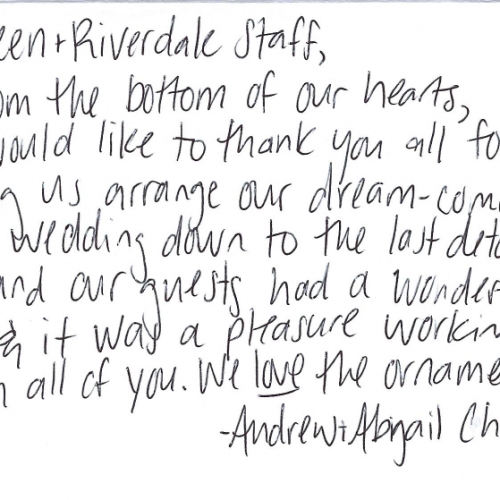 een + Riverdale Staff,
om the bottom of our hearts,
would like to thank you all fo
g us arrange our dream-com
wedding down to the last deta
and our guests had a wonder
it was a pleasure workin
all of you. We love the orname
-Andrew + Abigail Ch